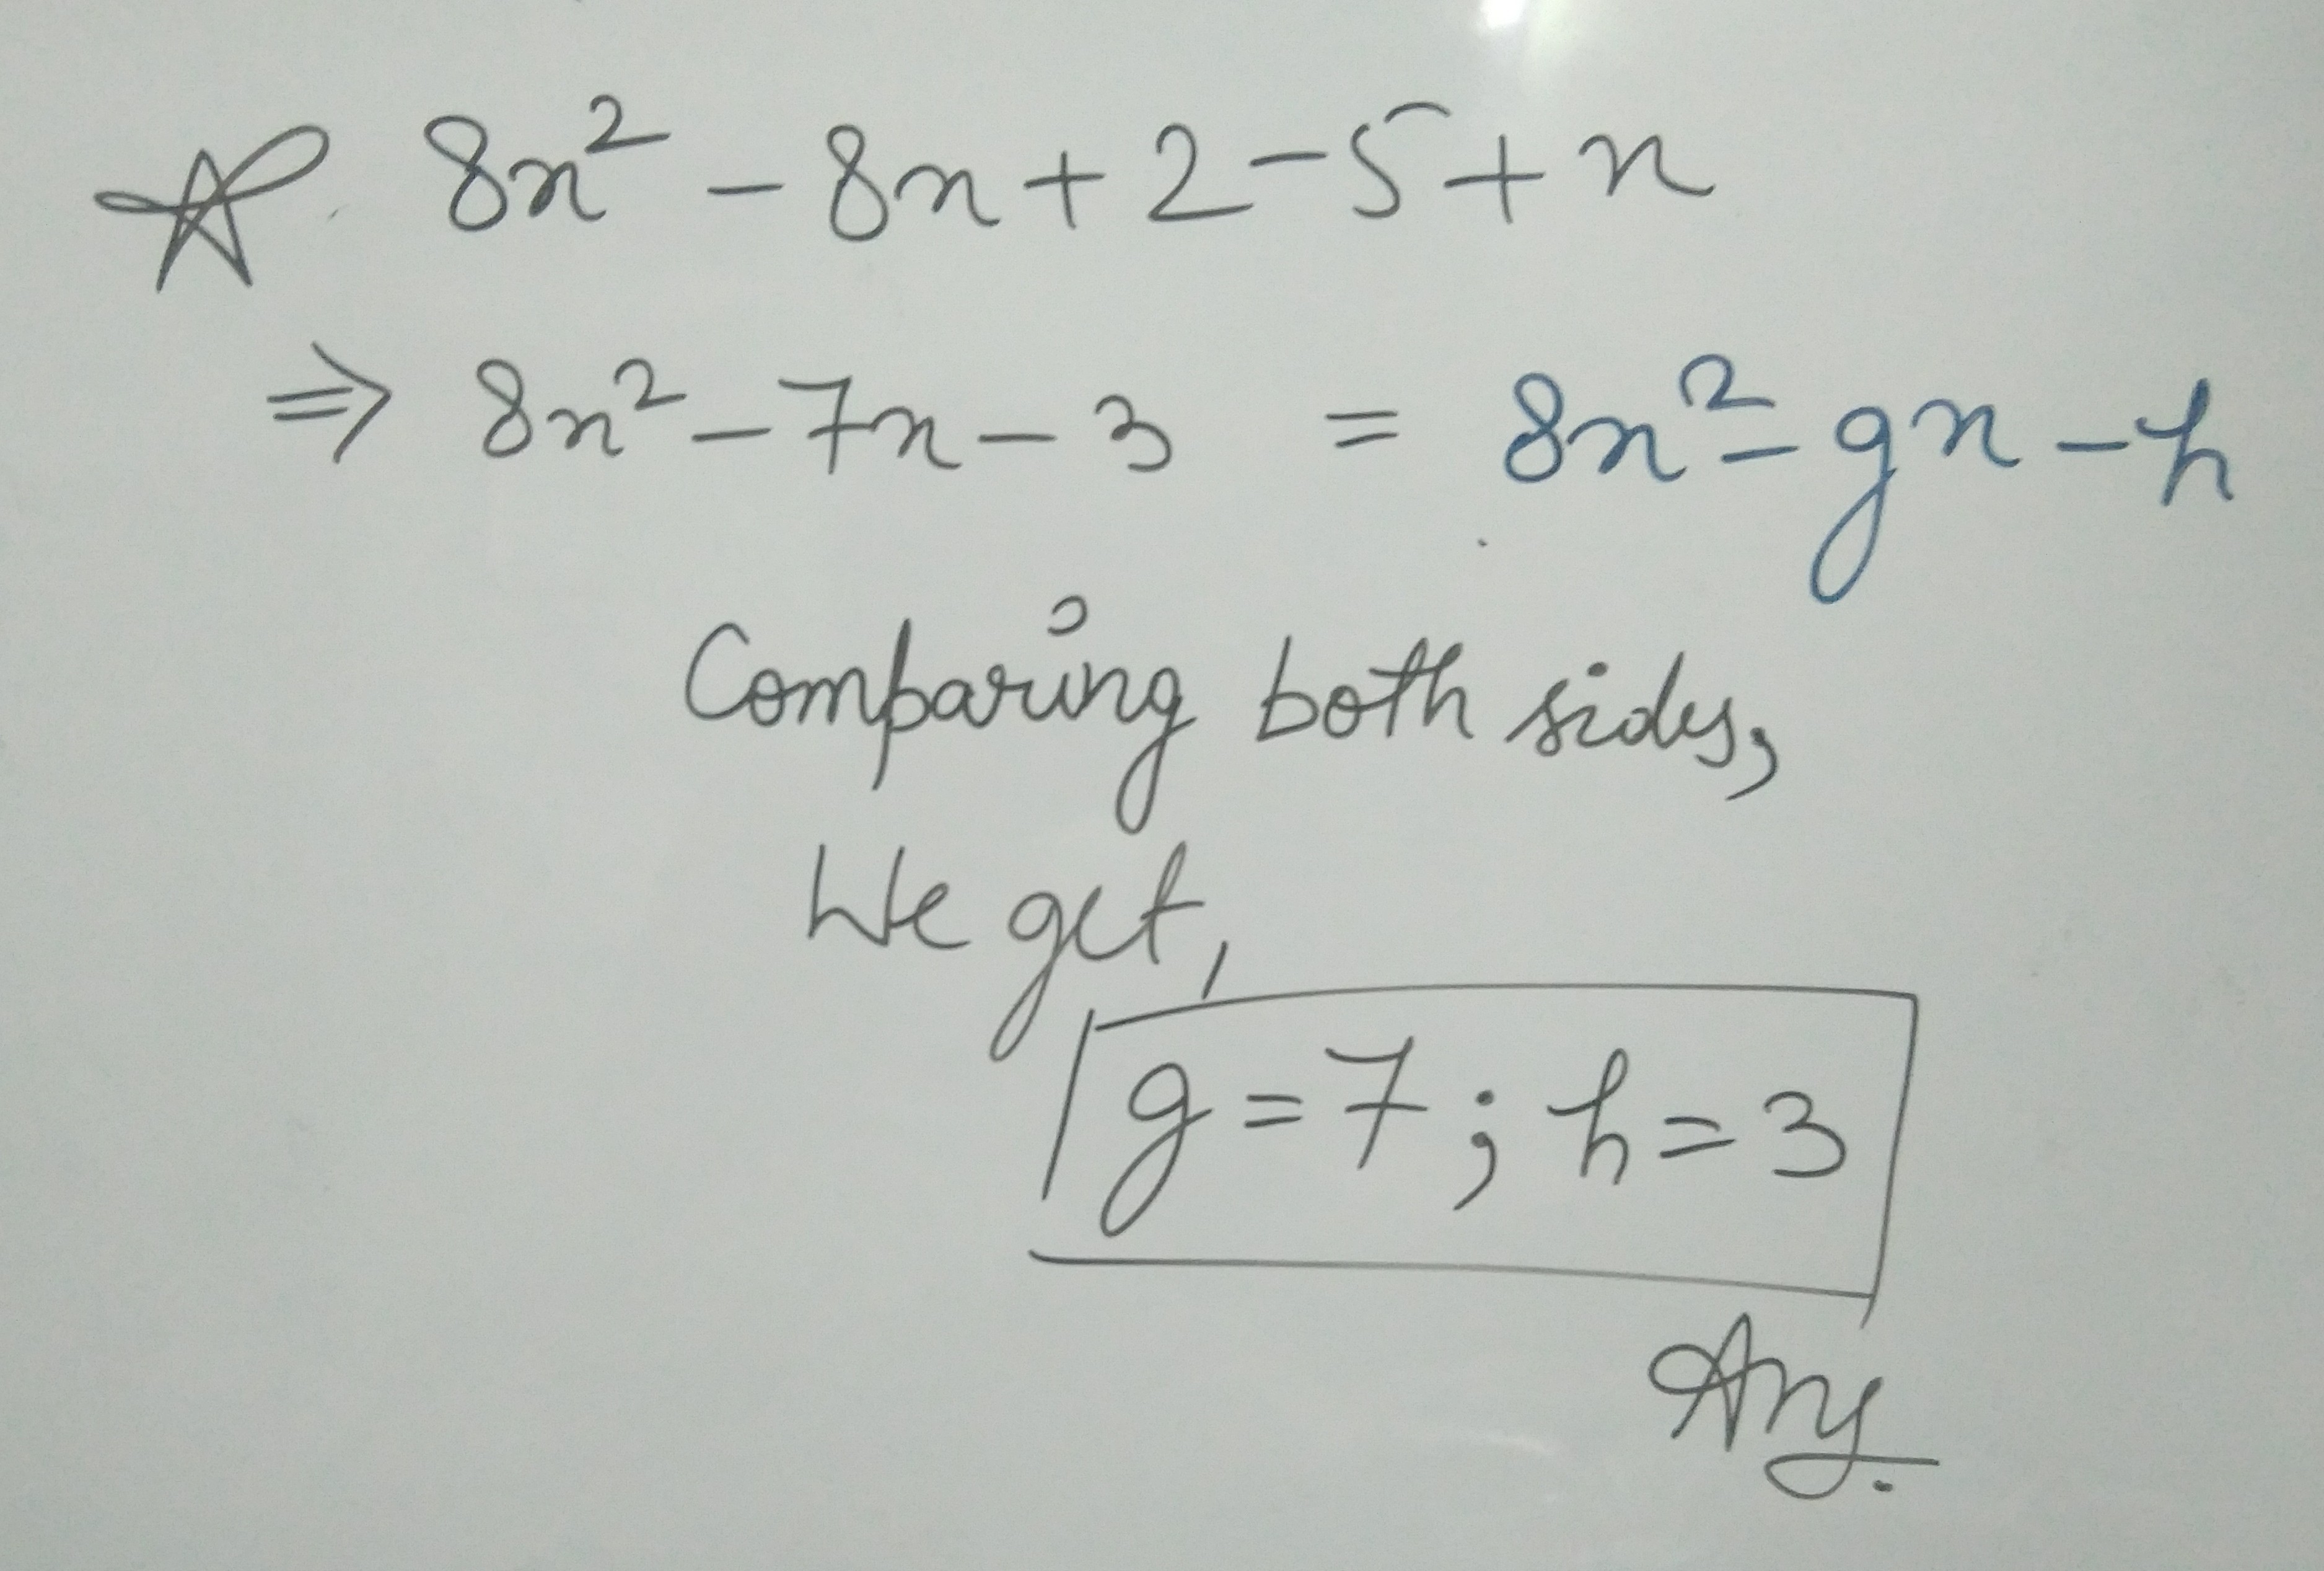 ☆. 8x² - 8x + 2 - 5 + x
⇒ 8x² - 7x - 3 = 8x² - gx - h
Comparing both sides,
We get,
g = 7 ; h = 3
Ans.